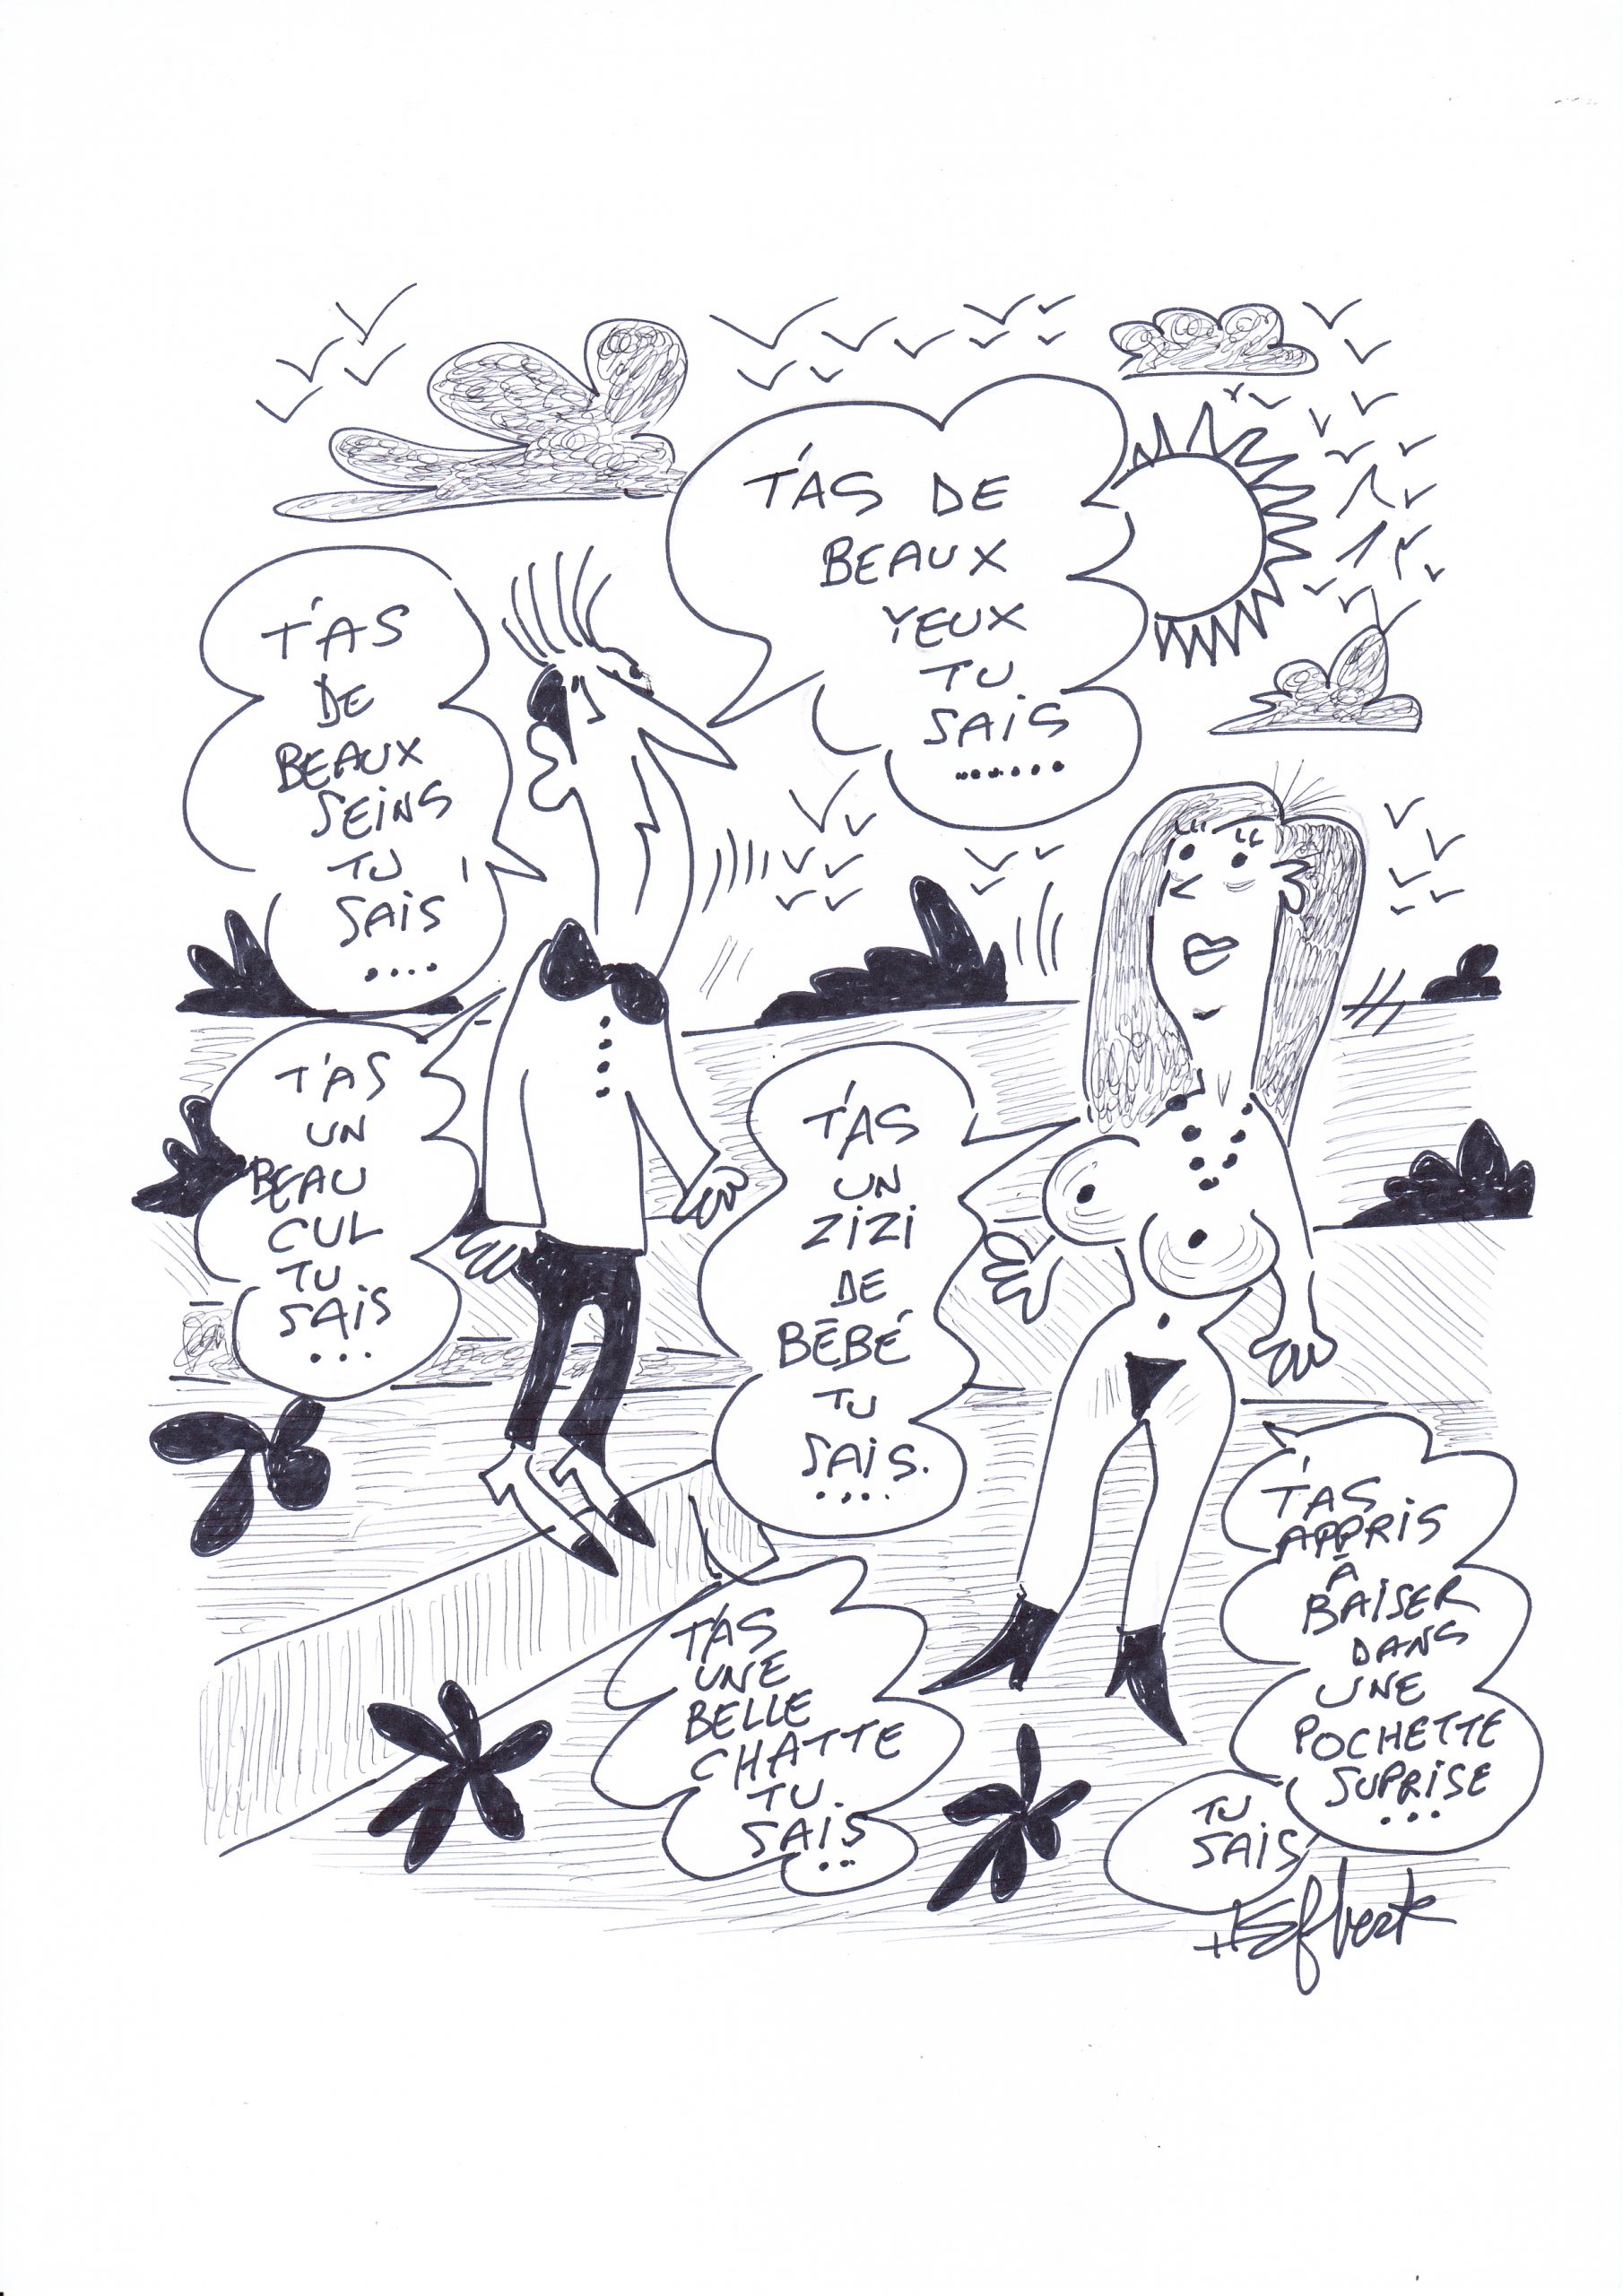 T'AS DE
BEAUX
YEUX
TU
SAIS
.......
T'AS
DE
BEAUX
SEINS
TU
SAIS
....
T'AS
UN
BEAU
CUL
TU
SAIS
...
T'AS
UN
ZIZI
DE
BÉBÉ
TU
SAIS.
....
T'AS
UNE
BELLE
CHATTE
TU
SAIS
...
T'AS
APPRIS
À
BAISER
DANS
UNE
POCHETTE
SUPRISE
...
TU
SAIS